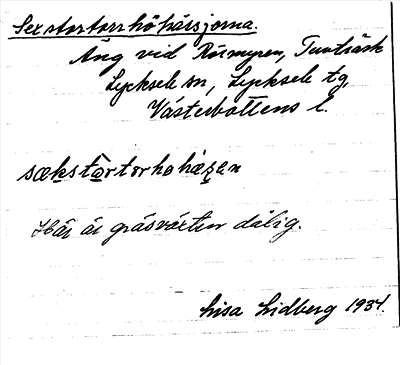 Sexstortorrhöhäsjorna.
Äng vid Rismyren, Tuvträsk
Lycksele sn, Lycksele tg,
Västerbottens l.
sækstørtorhøhæʂen
Här är gräsväxten dålig.
Lisa Lidberg 1934.